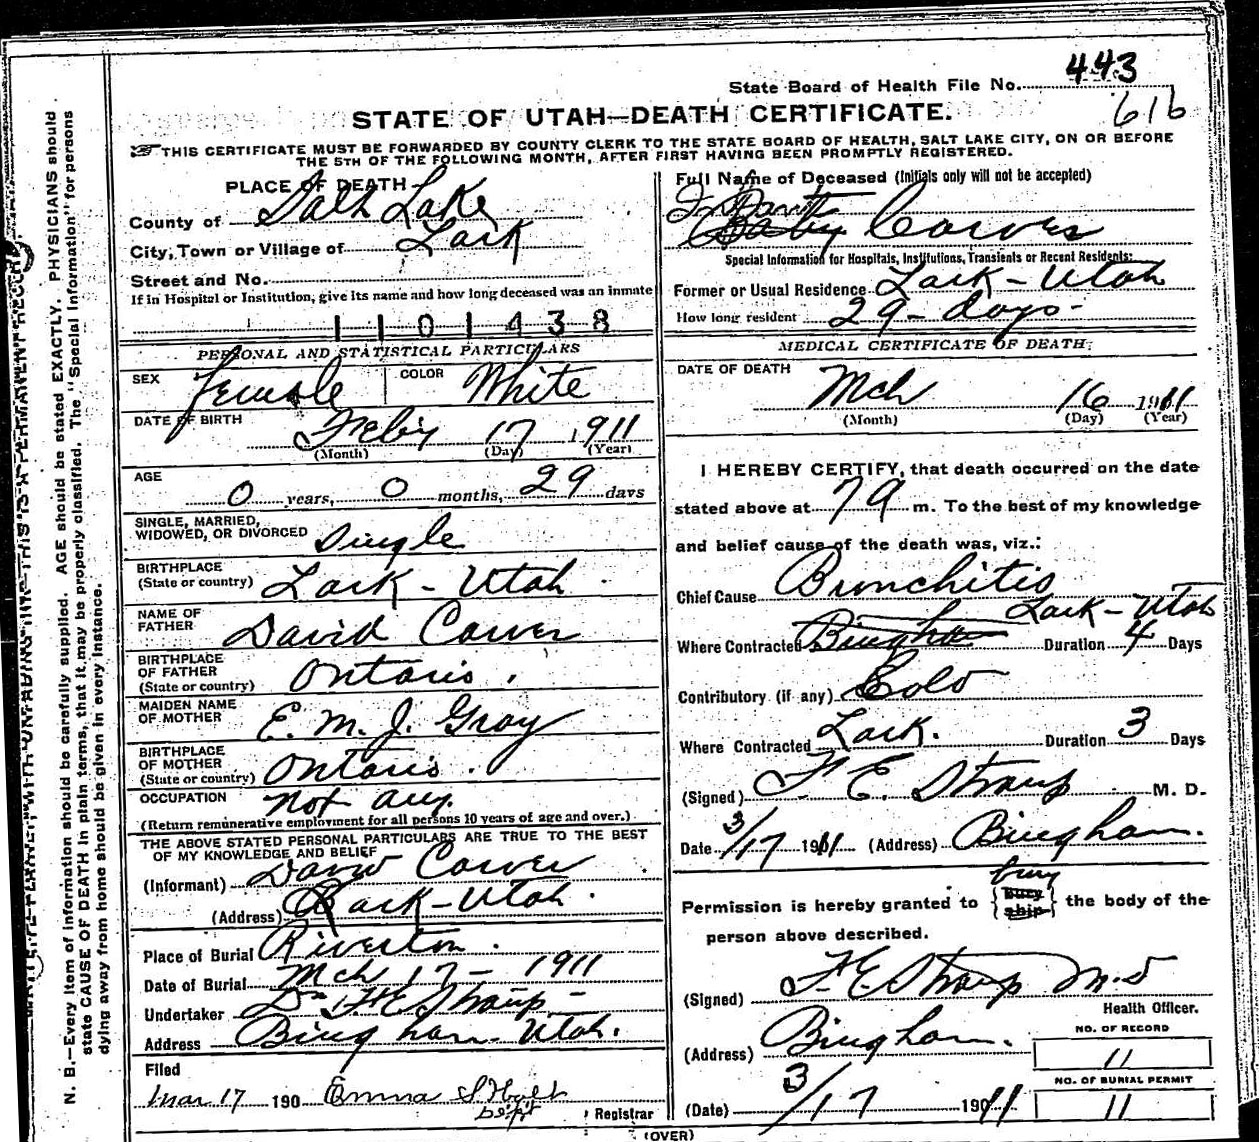 State Board of Health File No. 443
616
STATE OF UTAH—DEATH CERTIFICATE.
THIS CERTIFICATE MUST BE FORWARDED BY COUNTY CLERK TO THE STATE BOARD OF HEALTH, SALT LAKE CITY, ON OR BEFORE
THE 5TH OF THE FOLLOWING MONTH, AFTER FIRST HAVING BEEN PROMPTLY REGISTERED.
PLACE OF DEATH
County of Salt Lake
City, Town or Village of Lark
Street and No.
If in Hospital or Institution, give its name and how long deceased was an inmate
1101438
PERSONAL AND STATISTICAL PARTICULARS
SEX Female COLOR White
DATE OF BIRTH Feby 17 1911
(Month) (Day) (Year)
AGE
0 years, 0 months, 29 days
SINGLE, MARRIED,
WIDOWED, OR DIVORCED Single
BIRTHPLACE
(State or country) Lark - Utah
NAME OF
FATHER David Carver
BIRTHPLACE
OF FATHER
(State or country) Ontario.
MAIDEN NAME
OF MOTHER E. M. J. Gray
BIRTHPLACE
OF MOTHER
(State or country) Ontario.
OCCUPATION not any.
(Return remunerative employment for all persons 10 years of age and over.)
THE ABOVE STATED PERSONAL PARTICULARS ARE TRUE TO THE BEST
OF MY KNOWLEDGE AND BELIEF
(Informant) David Carver
(Address) Lark-Utah.
Place of Burial Riverton.
Date of Burial Mch 17 - 1911
Undertaker Dr F E Straup -
Address Bingham Utah.
Filed
Mar 17 190 Emma S. Holt
Dept Registrar
Full Name of Deceased (Initials only will not be accepted)
Infant
Baby Carver
Special Information for Hospitals, Institutions, Transients or Recent Residents:
Former or Usual Residence Lark - Utah
How long resident 29 - days -
MEDICAL CERTIFICATE OF DEATH;
DATE OF DEATH
Mch 16 1911
(Month) (Day) (Year)
I HEREBY CERTIFY, that death occurred on the date
stated above at 7 a m. To the best of my knowledge
and belief cause of the death was, viz.:
Chief Cause Bronchitis
Lark - Utah
Where Contracted Bingham Duration 4 Days
Contributory (if any) Cold
Where Contracted Lark. Duration 3 Days
(Signed) F. E. Straup M. D.
Date 3/17 1911 (Address) Bingham.
bury
Permission is hereby granted to { bury ship } the body of the
person above described.
(Signed) F. E Straup M.D
Health Officer.
(Address) Bingham.
NO. OF RECORD
11
NO. OF BURIAL PERMIT
11
(Date) 3/17 1911
(OVER)
N. B.—Every item of information should be carefully supplied. AGE should be stated EXACTLY. PHYSICIANS should
state CAUSE OF DEATH in plain terms, that it may be properly classified. The "Special Information" for persons
dying away from home should be given in every instance.